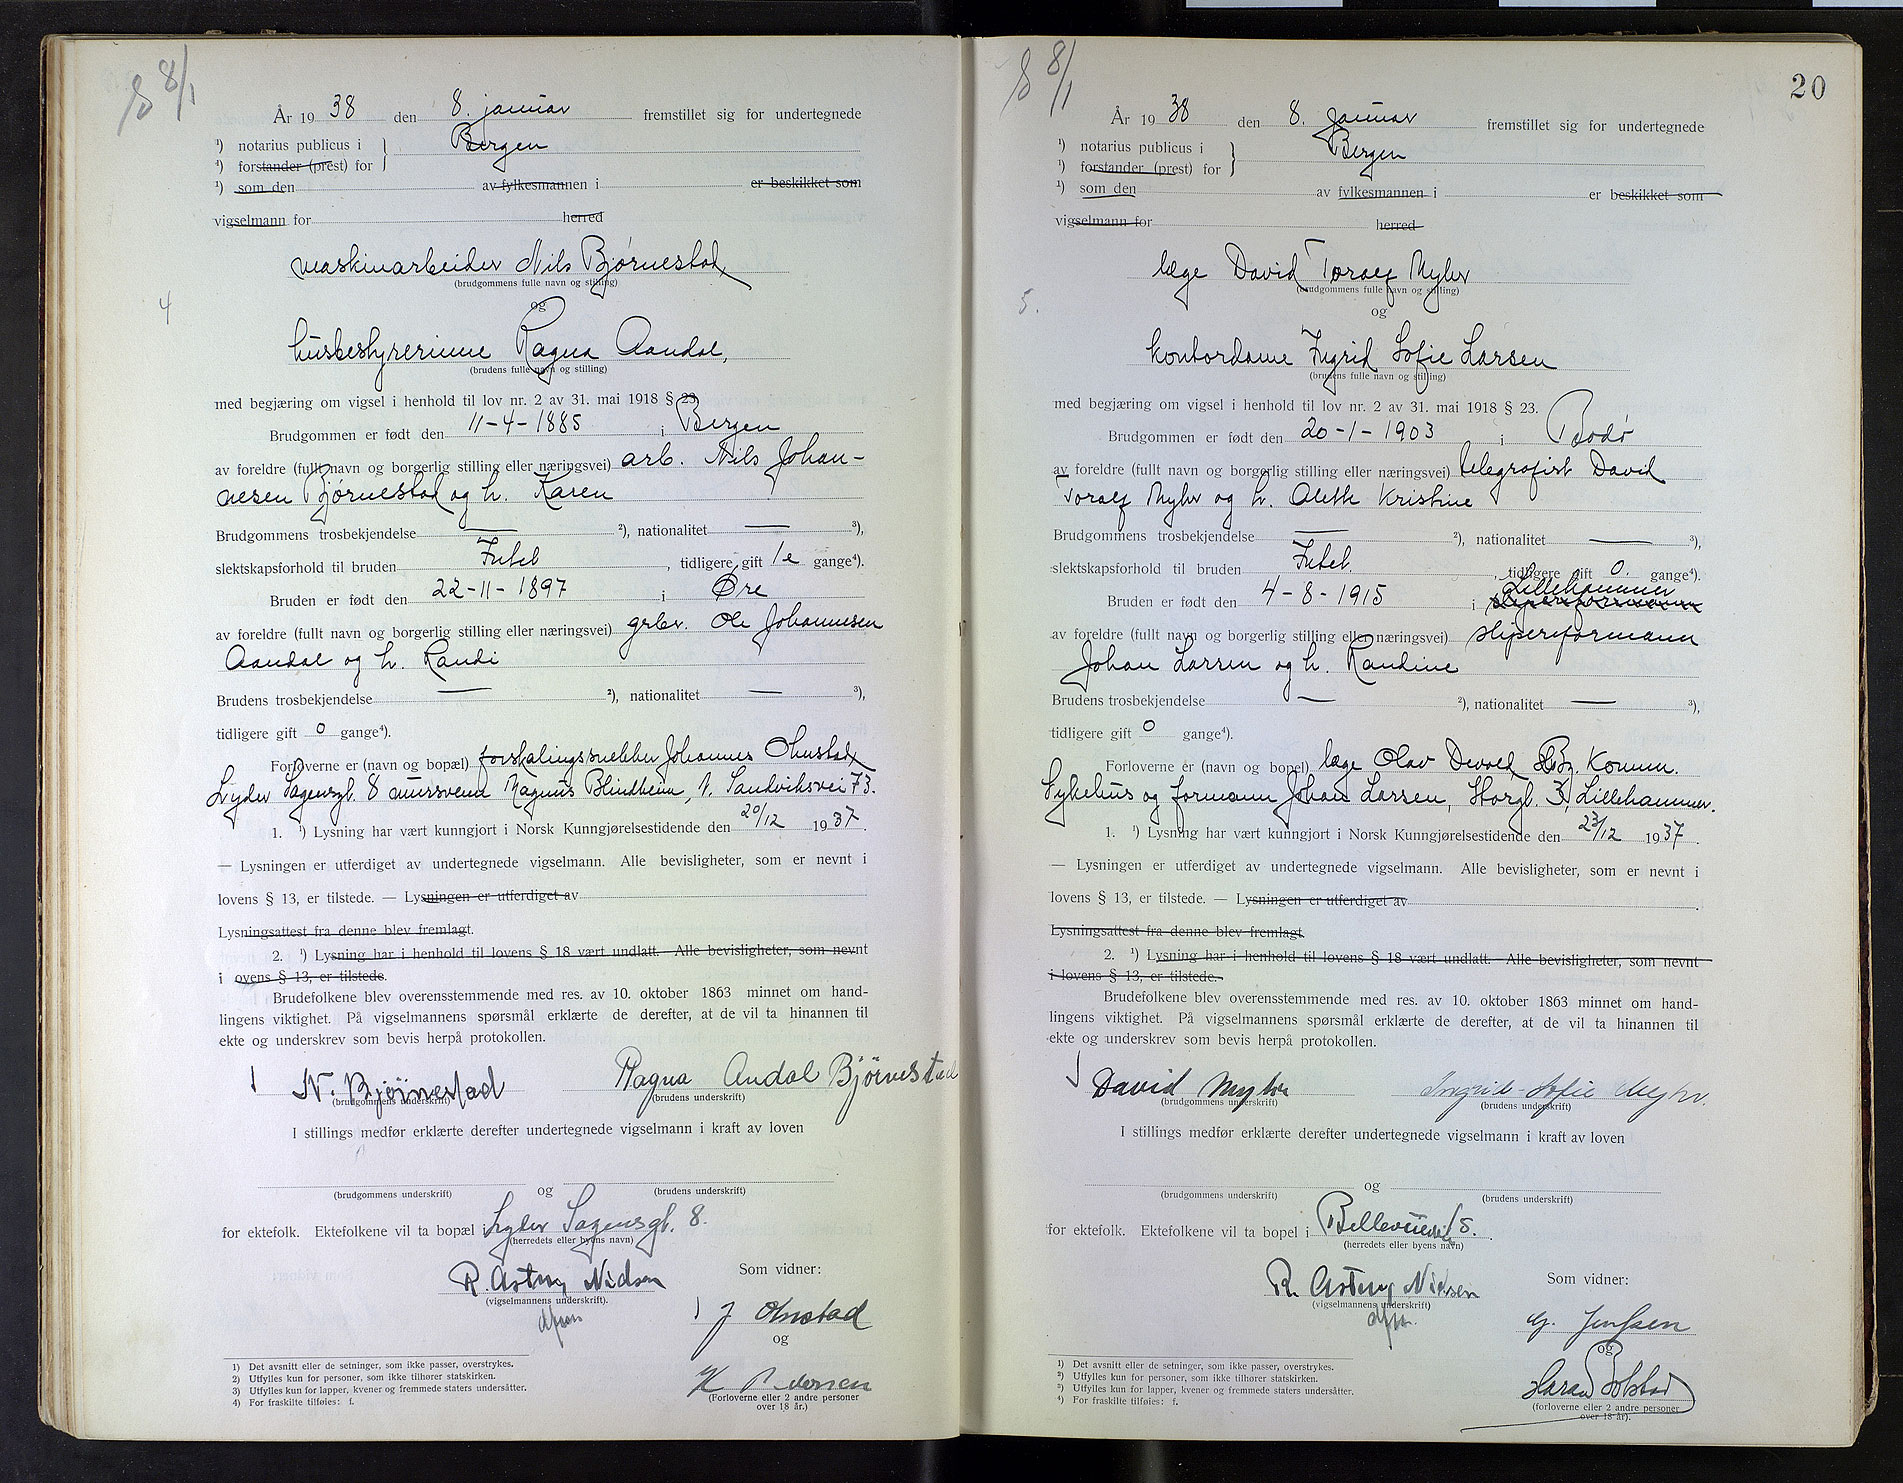 8/1
År 1938 den 8. januar fremstillet sig for undertegnede
¹) notarius publicus i } Bergen
¹) forstander (prest) for
¹) som den av fylkesmannen i er beskikket som
vigselmann for herred
maskinarbeider Nils Bjørnestad
(brudgommens fulle navn og stilling)
4
og
husbestyrerinne Ragna Aandal,
(brudens fulle navn og stilling)
med begjæring om vigsel i henhold til lov nr. 2 av 31. mai 1918 § 23.
Brudgommen er født den 11-4-1885 i Bergen
av foreldre (fullt navn og borgerlig stilling eller næringsvei) arb. Nils Johan-
nesen Bjørnestad og h. Karen
Brudgommens trosbekjendelse — ²), nationalitet — ³),
slektskapsforhold til bruden Intet , tidligere gift 1e gange⁴).
Bruden er født den 22-11-1897 i Øre
av foreldre (fullt navn og borgerlig stilling eller næringsvei) grbr. Ole Johannesen
Aandal og h. Randi
Brudens trosbekjendelse — ²), nationalitet — ³),
tidligere gift 0 gange⁴).
Forloverne er (navn og bopæl) forskalingssnekker Johannes Olmstad,
Lyder Sagensgt. 8 murersvenn Magnus Blindheim, N. Sandviksvei 73.
1. ¹) Lysning har vært kunngjort i Norsk Kunngjørelsestidende den 20/12 1937.
— Lysningen er utferdiget av undertegnede vigselmann. Alle bevisligheter, som er nevnt i
lovens § 13, er tilstede. — Lysningen er utferdiget av
Lysningsattest fra denne blev fremlagt.
2. ¹) Lysning har i henhold til lovens § 18 vært undlatt. Alle bevisligheter, som nevnt
i ovens § 13, er tilstede.
Brudefolkene blev overensstemmende med res. av 10. oktober 1863 minnet om hand-
lingens viktighet. På vigselmannens spørsmål erklærte de derefter, at de vil ta hinannen til
ekte og underskrev som bevis herpå protokollen.
N. Bjørnestad Ragna Andal Bjørnestad
(brudgommens underskrift) (brudens underskrift)
I stillings medfør erklærte derefter undertegnede vigselmann i kraft av loven
og
(brudgommens underskrift) (brudens underskrift)
for ektefolk. Ektefolkene vil ta bopæl i Lyder Sagensgt. 8.
(herredets eller byens navn)
Som vidner:
R. Astrup Nielsen
(vigselmannens underskrift).
J Olmstad
og
(Forloverne eller 2 andre personer
over 18 år.)
1) Det avsnitt eller de setninger, som ikke passer, overstrykes.
2) Utfylles kun for personer, som ikke tilhører statskirken.
3) Utfylles kun for lapper, kvener og fremmede staters undersåtter.
4) For fraskilte tilføies: f.
8/1
20
År 1938 den 8. januar fremstillet sig for undertegnede
¹) notarius publicus i } Bergen
¹) forstander (prest) for
¹) som den av fylkesmannen i er beskikket som
vigselmann for herred
læge David Toralf Myhr
(brudgommens fulle navn og stilling)
5.
og
kontordame Ingrid Sofie Larsen
(brudens fulle navn og stilling)
med begjæring om vigsel i henhold til lov nr. 2 av 31. mai 1918 § 23.
Brudgommen er født den 20-1-1903 i Bodø
av foreldre (fullt navn og borgerlig stilling eller næringsvei) telegrafist David
Toralf Myhr og h. Aleth Kristine
Brudgommens trosbekjendelse — ²), nationalitet — ³),
slektskapsforhold til bruden Intet. , tidligere gift 0. gange⁴).
Lillehammer
Bruden er født den 4-8-1915 i sliperiformann
av foreldre (fullt navn og borgerlig stilling eller næringsvei) sliperiformann
Johan Larsen og h. Randine
Brudens trosbekjendelse — ²), nationalitet — ³),
tidligere gift 0 gange⁴).
Forloverne er (navn og bopel) læge Olav Devold Bg. Komm.
Sykehus og formann Johan Larsen, Storgt. 3, Lillehammer.
1. ¹) Lysning har vært kunngjort i Norsk Kunngjørelsestidende den 23/12 1937.
— Lysningen er utferdiget av undertegnede vigselmann. Alle bevisligheter, som er nevnt i
lovens § 13, er tilstede. — Lysningen er utferdiget av
Lysningsattest fra denne blev fremlagt.
2. ¹) Lysning har i henhold til lovens § 18 vært undlatt. Alle bevisligheter, som nevnt
i lovens § 13, er tilstede.
Brudefolkene blev overensstemmende med res. av 10. oktober 1863 minnet om hand-
lingens viktighet. På vigselmannens spørsmål erklærte de derefter, at de vil ta hinannen til
ekte og underskrev som bevis herpå protokollen.
David Myhr Ingrid-Sofie Myhr.
(brudgommens underskrift) (brudens underskrift)
I stillings medfør erklærte derefter undertegnede vigselmann i kraft av loven
og
(brudgommens underskrift) (brudens underskrift)
for ektefolk. Ektefolkene vil ta bopel i Bellevuevei 5.
(herredets eller byens navn)
Som vidner:
R. Astrup Nielsen
(vigselmannens underskrift)
og
(forloverne eller 2 andre personer
over 18 år).
¹) Det avsnitt eller de setninger, som ikke passer, overstrykes.
²) Utfylles kun for personer, som ikke tilhører statskirken.
³) Utfylles kun for lapper, kvener og fremmede staters undersåtter.
⁴) For fraskilte tilføies: f.